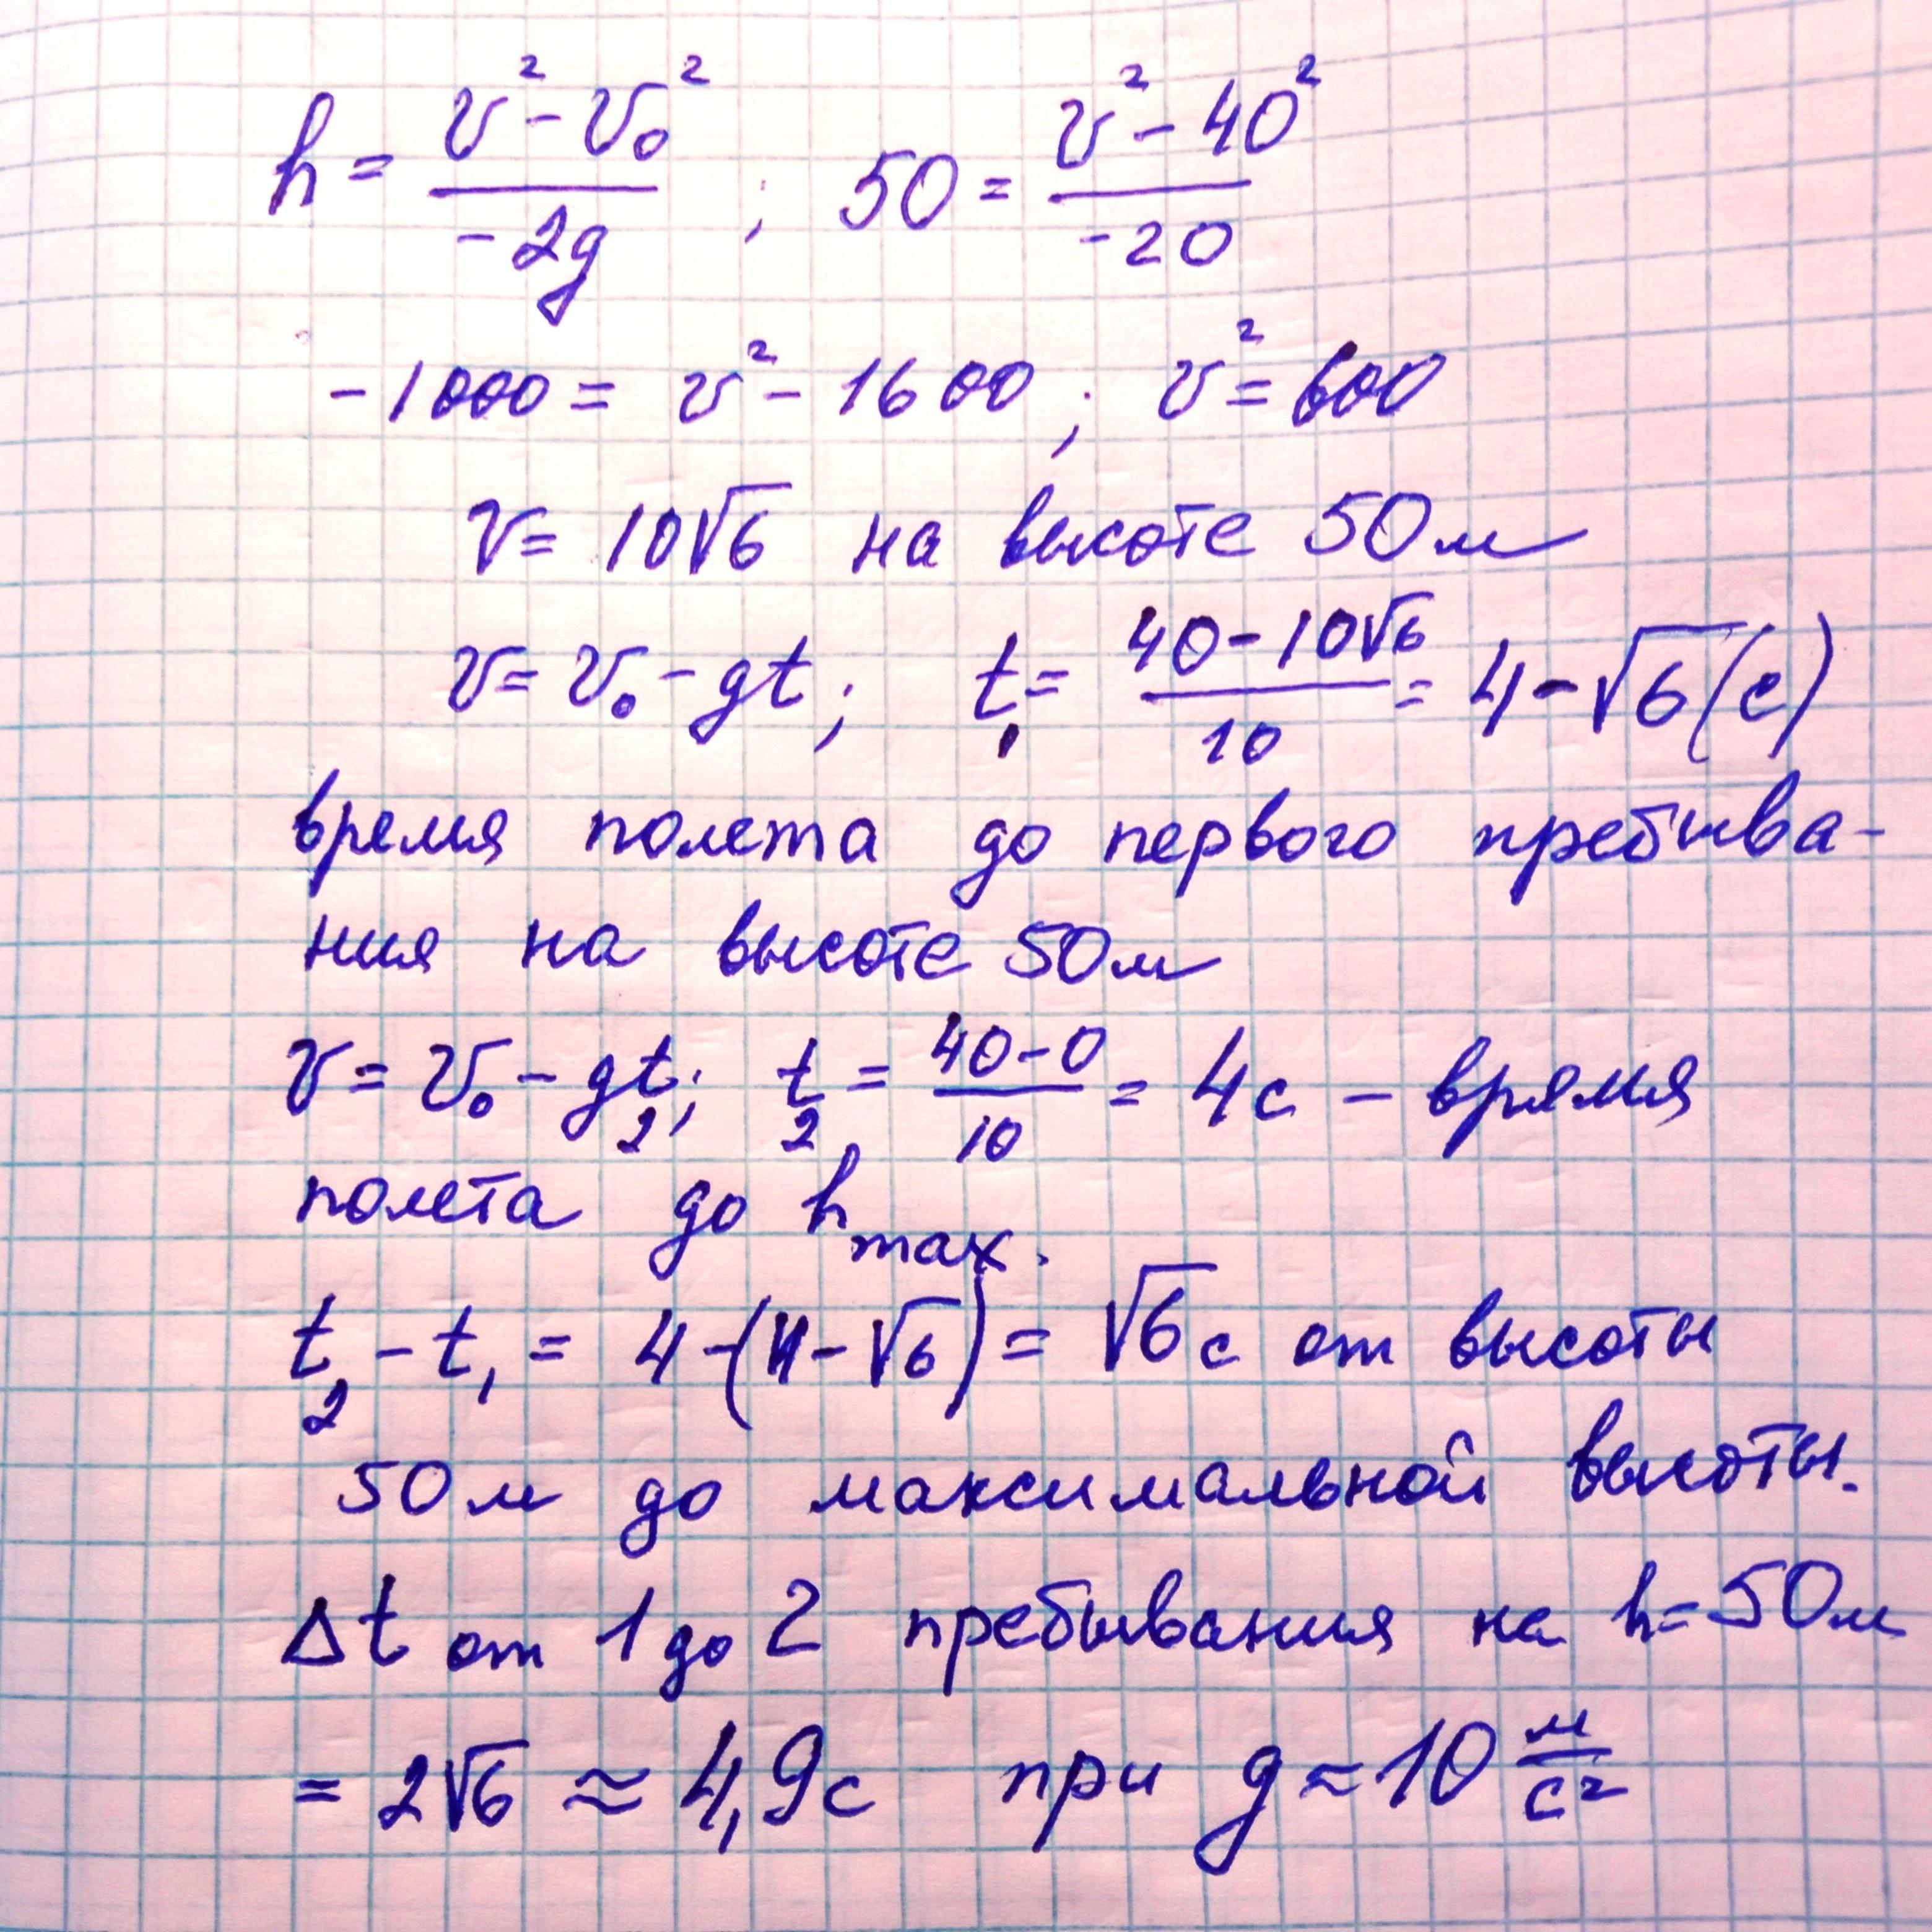 h = (v² - v₀²)/(-2g) ; 50 = (v² - 40²)/(-20)
-1000 = v² - 1600 ; v² = 600
v = 10√6 на высоте 50м
v = v₀ - gt ; t₁ = (40 - 10√6)/10 = 4 - √6 (с)
время полета до первого пребыва-
ния на высоте 50м
v = v₀ - gt₂ ; t₂ = (40 - 0)/10 = 4с - время
полета до h max.
t₂ - t₁ = 4 - (4 - √6) = √6 с от высоты
50м до максимальной высоты.
Δt от 1 до 2 пребывания на h = 50м
= 2√6 ≈ 4,9с при g ≈ 10 м/с²